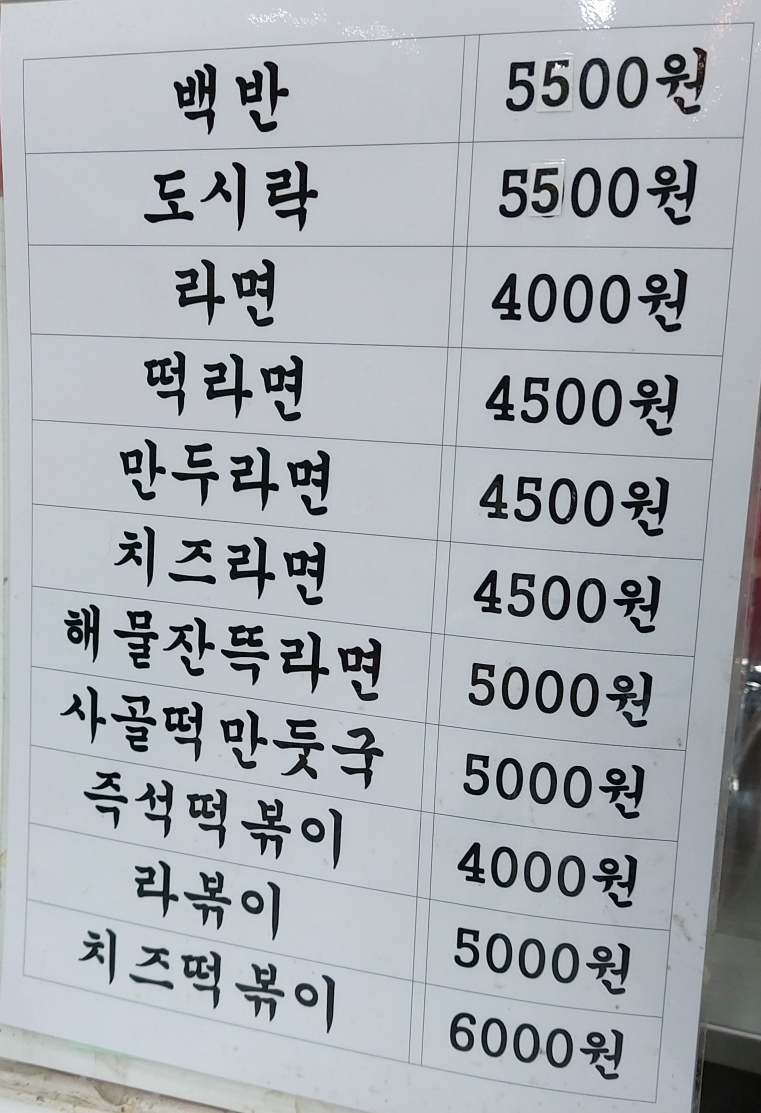 백반 5500원
도시락 5500원
라면 4000원
떡라면 4500원
만두라면 4500원
치즈라면 4500원
해물잔뜩라면 5000원
사골떡만둣국 5000원
즉석떡볶이 4000원
라볶이 5000원
치즈떡볶이 6000원